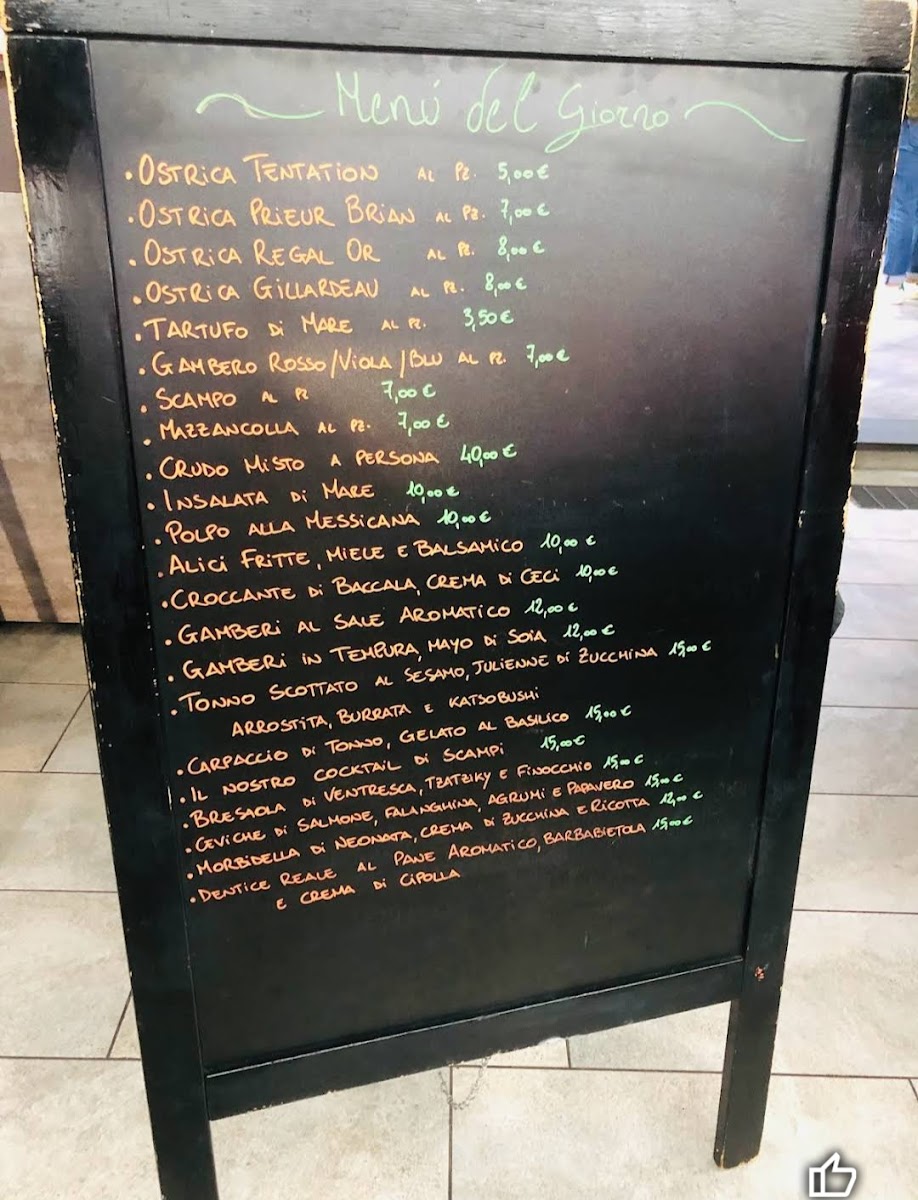 Menú del Giorno
• OSTRICA TENTATION AL PZ. 5,00 €
• OSTRICA PRIEUR BRIAN AL PZ. 7,00 €
• OSTRICA REGAL OR AL PZ. 8,00 €
• OSTRICA GILLARDEAU AL PZ. 8,00 €
• TARTUFO DI MARE AL PZ. 3,50 €
• GAMBERO ROSSO/VIOLA/BLU AL PZ. 7,00 €
• SCAMPO AL PZ 7,00 €
• MAZZANCOLLA AL PZ. 7,00 €
• CRUDO MISTO A PERSONA 40,00 €
• INSALATA DI MARE 10,00 €
• POLPO ALLA MESSICANA 10,00 €
• ALICI FRITTE, MIELE E BALSAMICO 10,00 €
• CROCCANTE DI BACCALA, CREMA DI CECI 10,00 €
• GAMBERI AL SALE AROMATICO 12,00 €
• GAMBERI IN TEMPURA, MAYO DI SOIA 12,00 €
• TONNO SCOTTATO AL SESAMO, JULIENNE DI ZUCCHINA 15,00 €
ARROSTITA, BURRATA E KATSOBUSHI
• CARPACCIO DI TONNO, GELATO AL BASILICO 15,00 €
• IL NOSTRO COCKTAIL DI SCAMPI 15,00 €
• BRESAOLA DI VENTRESCA, TZATZIKY E FINOCCHIO 15,00 €
• CEVICHE DI SALMONE, FALANGHINA, AGRUMI E PAPAVERO 15,00 €
• MORBIDELLA DI NEONATA, CREMA DI ZUCCHINA E RICOTTA 12,00 €
• DENTICE REALE AL PANE AROMATICO, BARBABIETOLA 15,00 €
E CREMA DI CIPOLLA